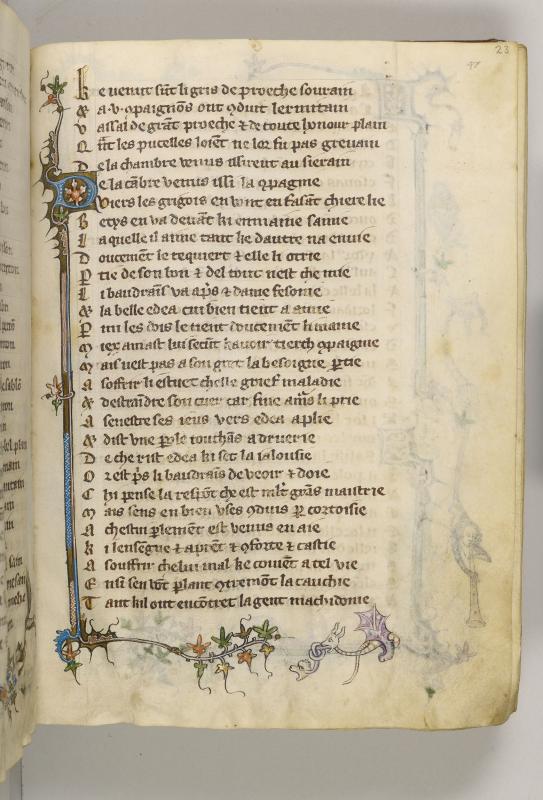 23
Ke venut sũt li gris de proeche sourain
& a .v. ꝯpaignõs ont ꝯduit lermitain
Vassal de grãt proeche & de toute honour plain
Qñt les pucelles losent ne lor fu pas grevain
De la chambre venus issirent au sierain
De la cãbre venus issi la ꝯpagnie
Viers les grigois en vont en fasãt chiere lie
Betys en va devãt ki enmaine sanie
Laquelle il aime tant ke dautre na envie
Doucement le requiert & elle li otrie
Ptie de son bon & del tout nest che mie
Li baudrains va ap̃s & dame fesonie
& la belle edea cui bien tient a amie
Pmi les dois le tient doucemẽt li manie
Miex amast lui secũt
Mais nest pas a son gret la besoigne ptie
A soffrir li estuet chelle grief maladie
& destraĩdre son cuer car fine am̃s li prie
A senestre ses ieus vers edea aplie
& dist une pole touchãs a druerie
De che rist edea ki set la ialousie
Or est p̃s li baudrains de veoir & doie
Chi pense la respõt che est ml't grãs maistrie
Mais sens en bien uses ꝯduis p cortoisie
A chestui plement est venus en aie
Ki lensegne & aprẽt & ꝯforte & castie
A souffrir chelui mal ke covĩet a tel vie
Ensi sen võt plant ꝯtremõt la cauchie
Tant kil ont encõtret la gent machidonie